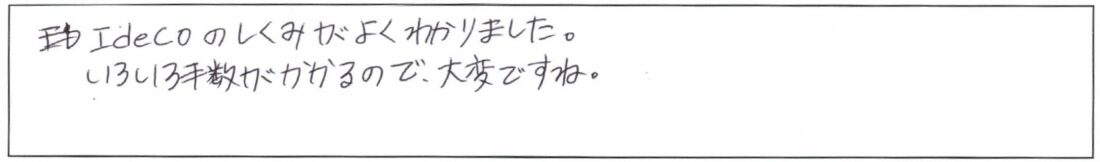 Idecoのしくみがよくわかりました。
いろいろ手数がかかるので、大変ですね。